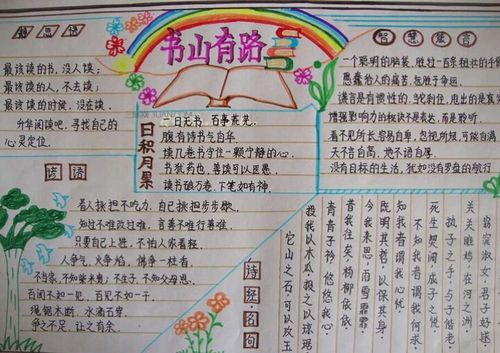 书山有路
最该读的书,没人读;
最该读的人,不去读;
最该读的时候,没在读。
升华阅读吧,寻找自己的
心灵定位。
日积月累
一日无书,百事荒芜。
腹有诗书气自华
读几卷书学住一颗宁静的心。
书犹药也,善读可以医愚。
读书破万卷,下笔如有神。
智慧集言
一个聪明的脑袋,胜过一百双
愚蠢给人的痛苦,包胜于命运。
谎言是有惯性的,
增强影响力的秘诀不是表达,而是聆听。
看不见所长容易自卑,包视所短,可能自满
天不言自高,地不语自厚。
没有目标的生活,犹如没有罗盘的航行
谚语
看人挑担不吃力,自己挑担步步歇。
知过不难改过难,言善不难行善难。
只要自己上进,不怕人家看轻。
人争气,火争焰,佛争一炷香。
不当家,不知柴米贵;不生子,不知父母恩。
百闻不如一见,百见不如一干。
绳锯木断,水滴石穿。
争之不足,让之有余。
诗经·名句
窈窕淑女,君子好逑。
关关雎鸠,在河之洲。
执子之手,与子偕老。
死生契阔,成子之悦。
不知我者谓我何求
知我者谓我心忧
既明其哲,以保其身。
今我来思,雨雪霏霏
昔我往矣,杨柳依依
青青子衿,悠悠我心
投我以木瓜,报之以琼琚
它山之石,可以攻玉